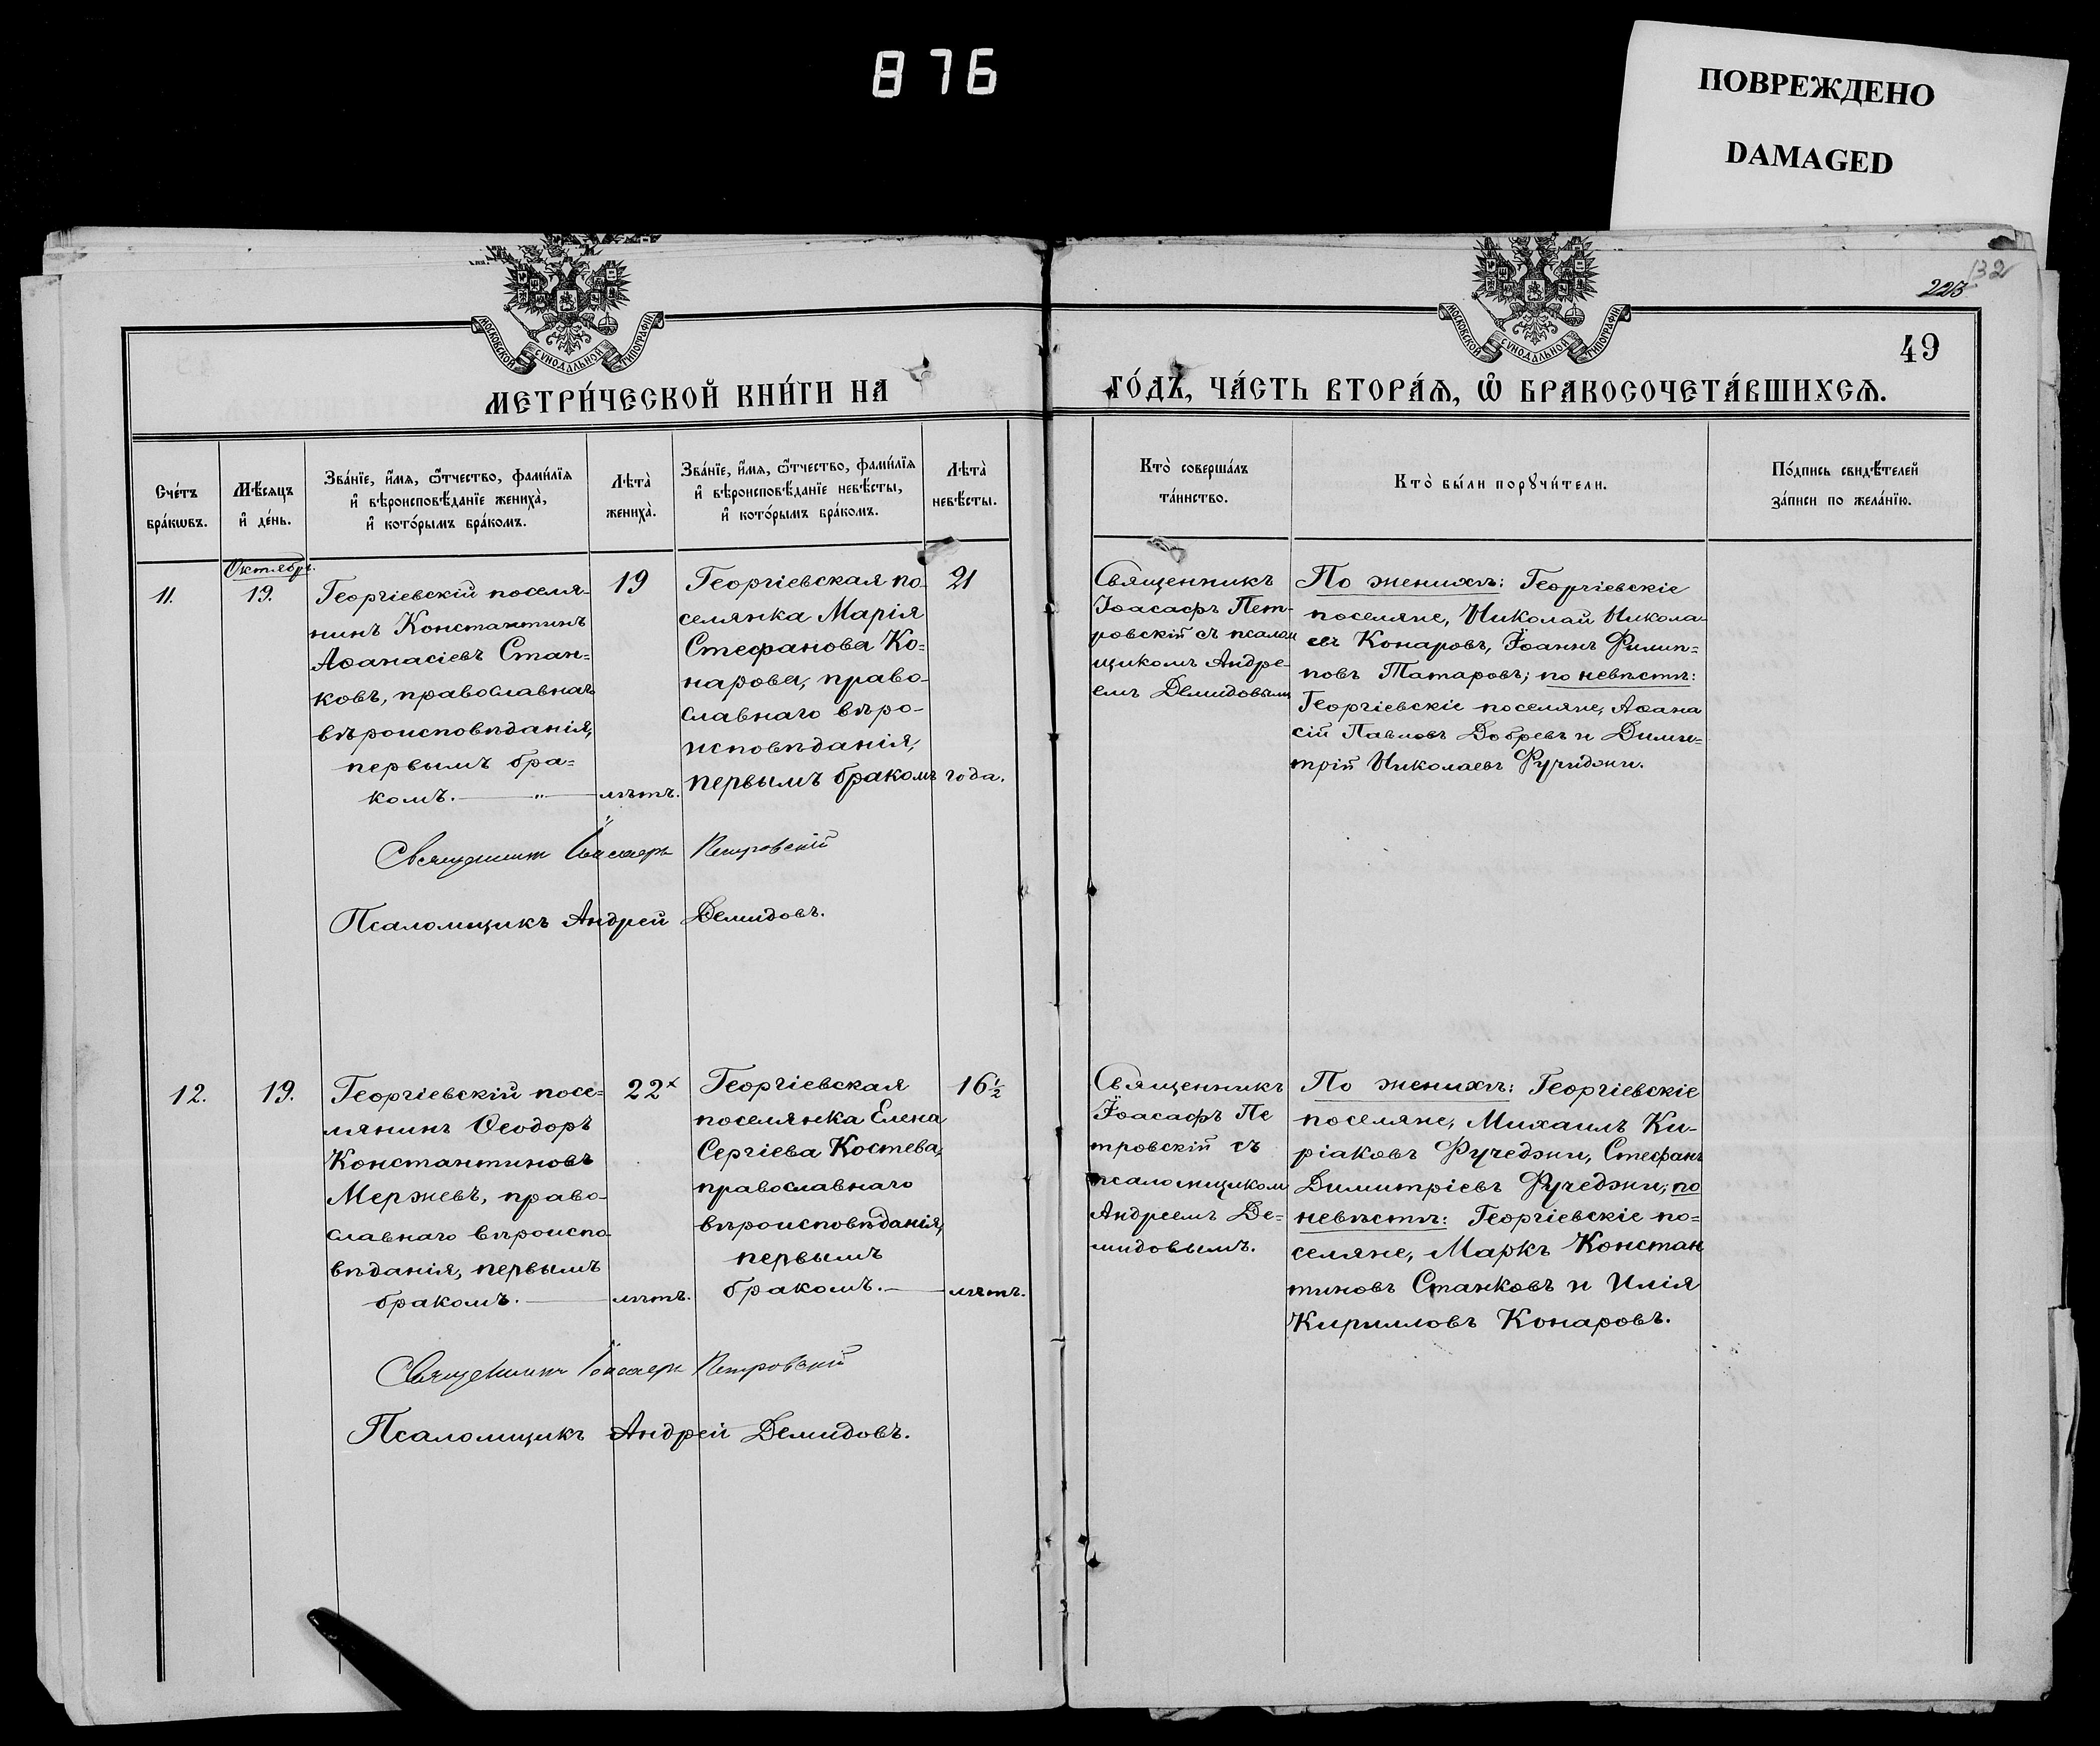 876
ПОВРЕЖДЕНО
DAMAGED
132
223
49
МОСКОВСКОЙ СѴНОДАЛЬНОЙ ТИПОГРАФІИ
МОСКОВСКОЙ СѴНОДАЛЬНОЙ ТИПОГРАФІИ
МЕТРИ́ЧЕСКОЙ КНИ́ГИ НА
ГО́ДЪ, ЧА́СТЬ ВТОРА́Ѧ, Ѽ БРАКОСОЧЕТА́ВШИХСѦ.
Сче́тъ
бра́кѡвъ.
Мѣ́сѧцъ
и҆ де́нь.
Зва́нїе, и҆́мѧ, ѻ҆́тчество, фами́лїѧ
и҆ вѣроисповѣ́данїе жениха̀,
и҆ кото́рымъ бра́комъ.
Лѣта̀
жениха̀.
Зва́нїе, и҆́мѧ, ѻ҆́тчество, фами́лїѧ
и҆ вѣроисповѣ́данїе невѣ́сты,
и҆ кото́рымъ бра́комъ.
Лѣта̀
невѣ́сты.
Кто̀ соверша́лъ
та́инство.
Кто̀ бы́ли порꙋчи́тели.
По́дпись свидѣ́телей
за́писи по жела́нїю.
11.
Октябрь.
19.
Георгіевскій поселя-
нинъ Константинъ
Аѳанасіевъ Стан=
ковъ, православнаго
вѣроисповѣданія,
первымъ бра=
комъ. — " —
19
лѣтъ.
Георгіевская по-
селянка Марія
Стефанова Ко=
нарова, право-
славнаго вѣро-
исповѣданія,
первымъ бракомъ
21
года.
Священникъ
Іоасафъ Пет-
ровскій съ псалом
щикомъ Андре-
емъ Демидовымъ
По женихѣ: Георгіевскіе
поселяне, Николай Никола-
евъ Конаровъ, Іоаннъ Филип=
повъ Татаровъ; по невѣстѣ:
Георгіевскіе поселяне, Аѳана
сій Павловъ Добревъ и Дими=
трій Николаевъ Фучиджи.
Священникъ Іоасафъ Петровскій
Псаломщикъ Андрей Демидовъ.
12.
19.
Георгіевскій посе=
лянинъ Ѳеодоръ
Константиновъ
Мержевъ, право-
славнаго вѣроиспо-
вѣданія, первымъ
бракомъ. —
22ˣ
лѣтъ.
Георгіевская
поселянка Елена
Сергіева Костева,
православнаго
вѣроисповѣданія,
первымъ
бракомъ. —
16½
лѣтъ.
Священникъ
Іоасафъ Пе
тровскій съ
псаломщикомъ
Андреемъ Де=
мидовымъ.
По женихѣ: Георгіевскіе
поселяне, Михаилъ Ки-
ріаковъ Фучеджи, Стефанъ
Димитріевъ Фучеджи; по
невѣстѣ: Георгіевскіе по=
селяне, Маркъ Констан
тиновъ Станковъ и Илія
Кирилловъ Конаровъ.
Священникъ Іоасафъ Петровскій
Псаломщикъ Андрей Демидовъ.